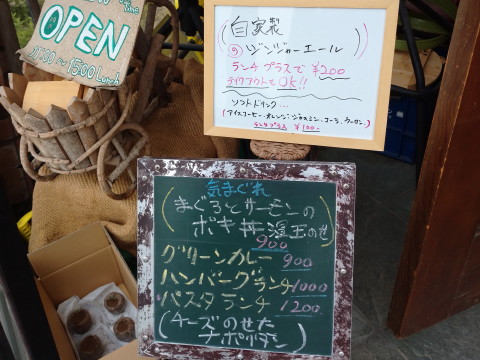 OPEN
11:00~15:00 Lunch
自家製
の ジンジャーエール
ランチプラスで ¥200
テイクアウトでOK!!
ソフトドリンク...
(アイスコーヒー、オレンジ、ジャスミン、コーラ、ウーロン。)
ランチプラス ¥100-
気まぐれ
まぐろとサーモンの
ポキ丼 温玉のせ
900
グリーンカレー 900
ハンバーグランチ 1000
パスタランチ 1200
(チーズのせた
ナポリタン)